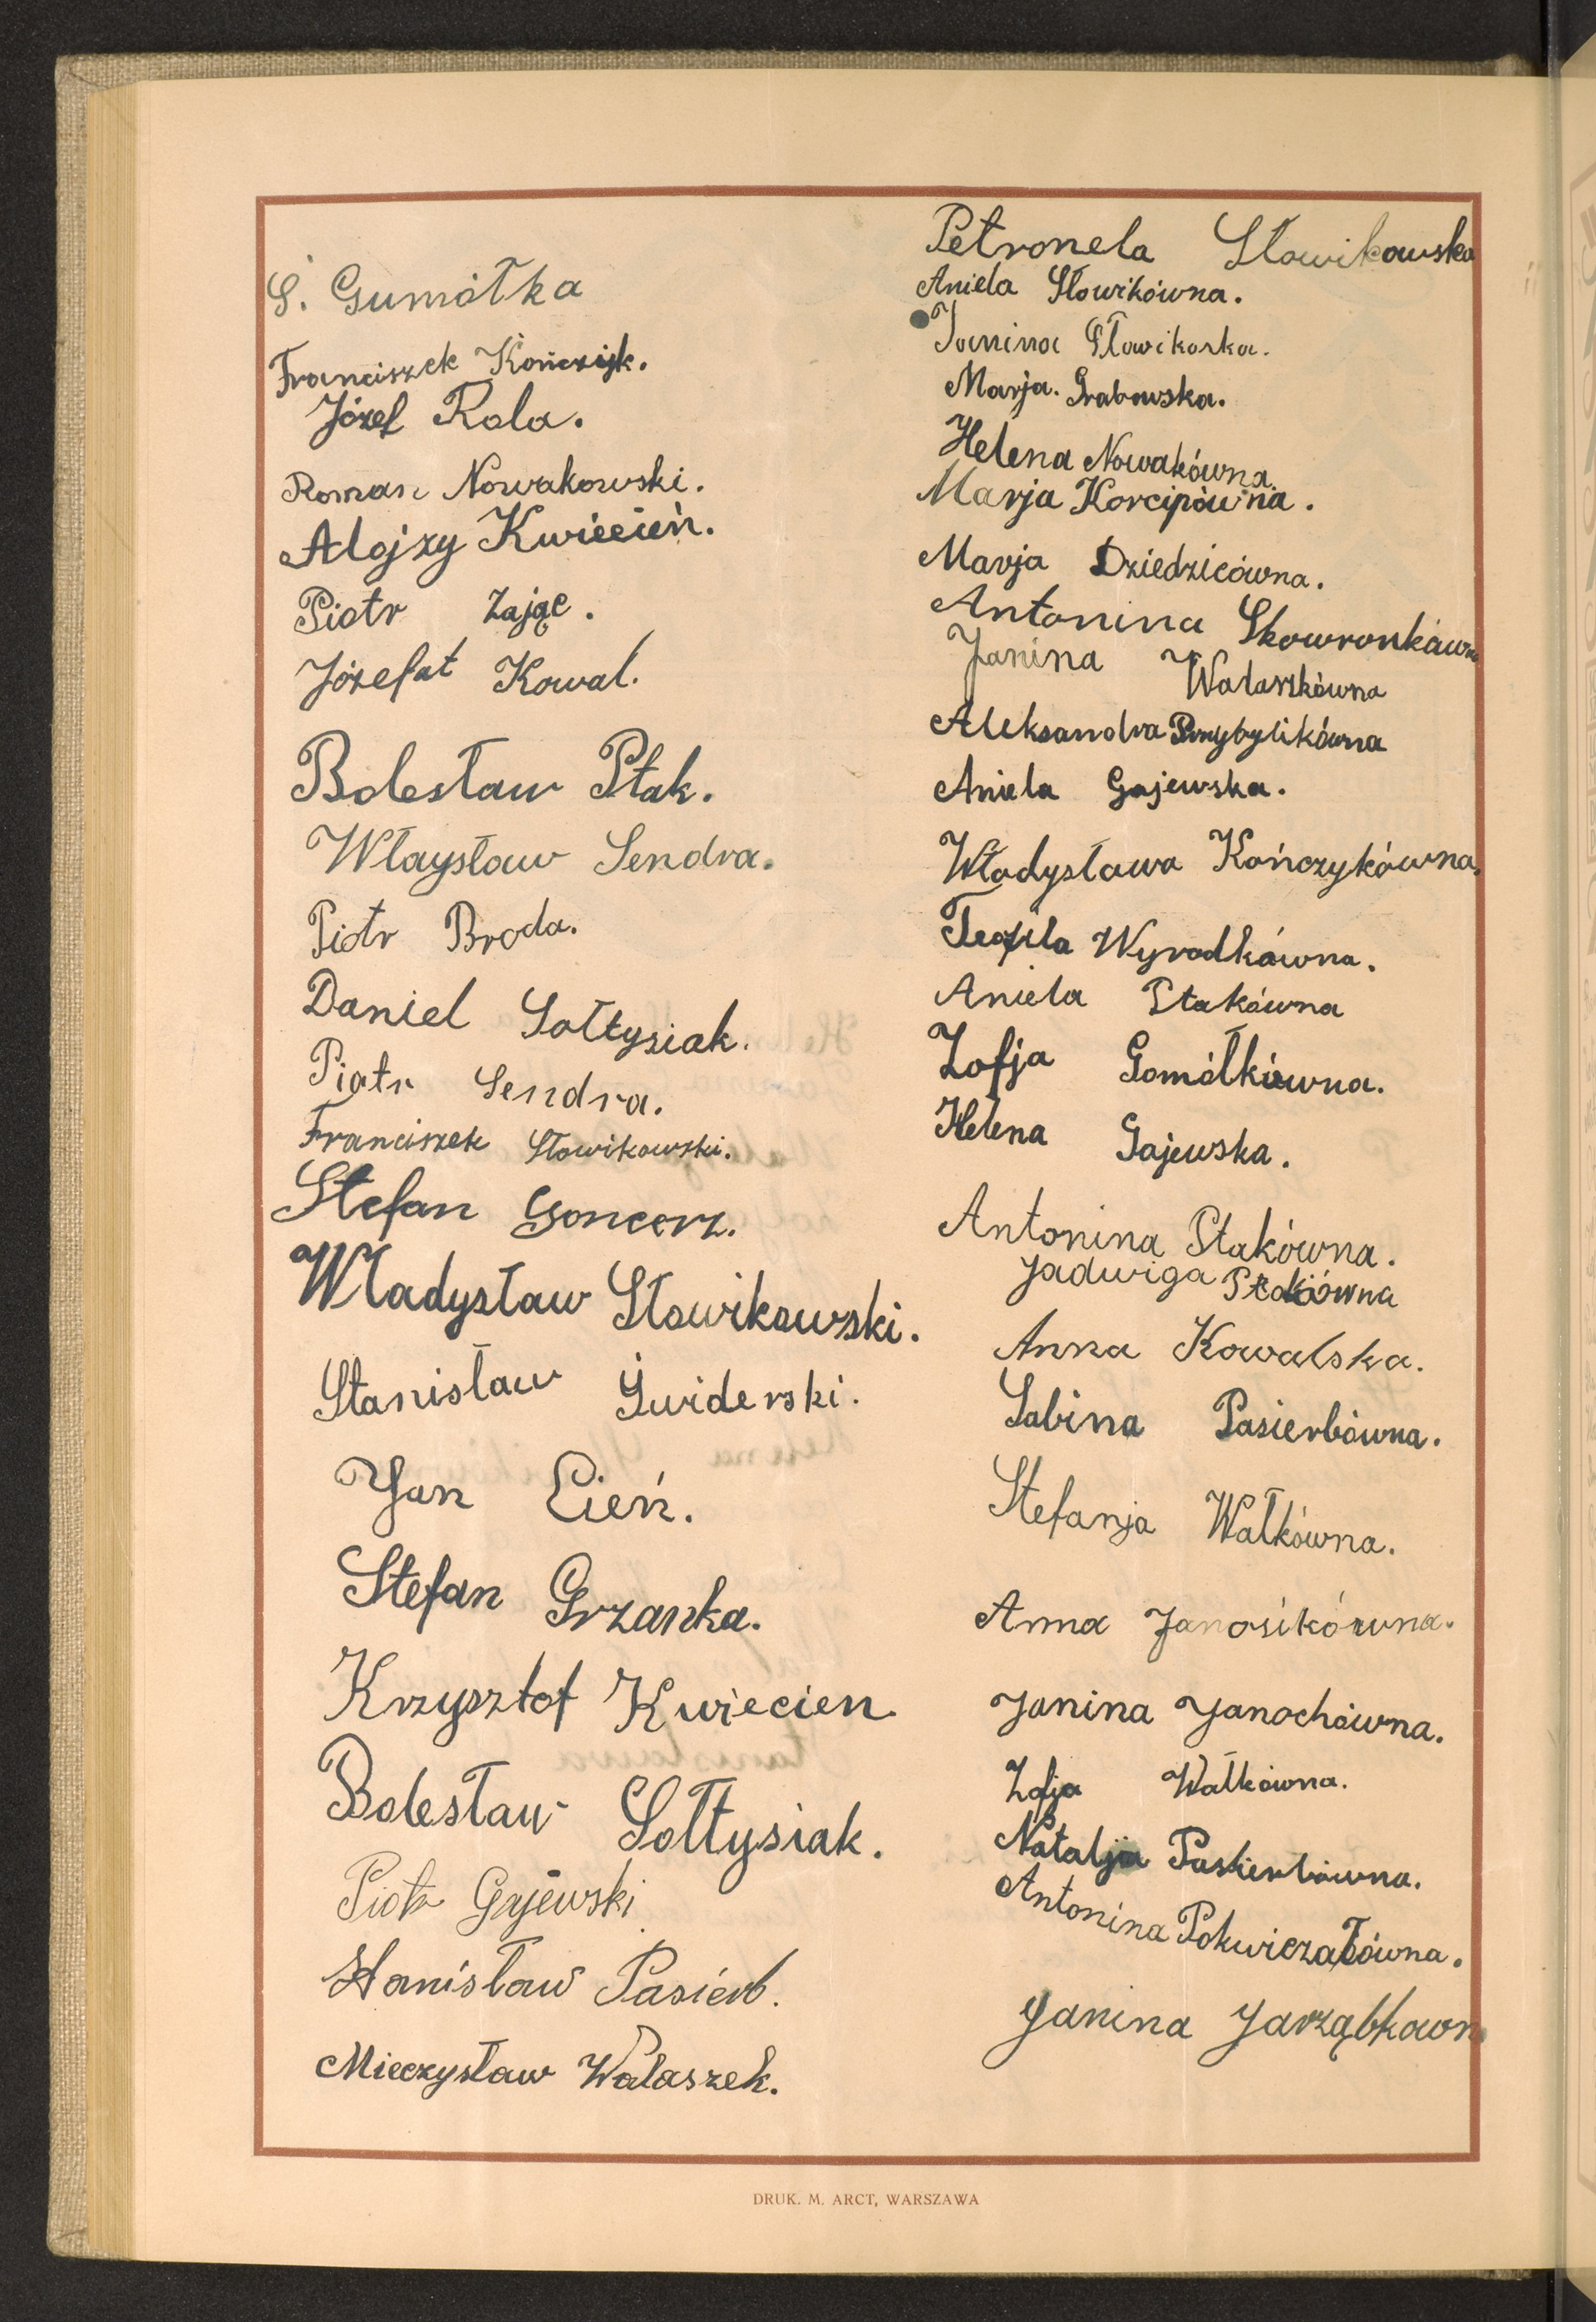 Ś. Gumółka
Franciszek Kończyk.
Józef Rola.
Roman Nowakowski.
Alojzy Kwiecień.
Piotr Zając.
Józefat Kowal.
Bolesław Ptak.
Właysław Sendra.
Piotr Broda.
Daniel Sołtysiak.
Piotr Sendra.
Franciszek Słowikowski.
Stefan Goncerz.
Władysław Słowikowski.
Stanisław Świderski.
Jan Cień.
Stefan Grzanka.
Krzysztof Kwiecien.
Bolesław Sołtysiak.
Piotr Gajewski
Stanisław Pasierb.
Mieczysław Walaszek.
Petronela Słowikowska
Aniela Słowikówna.
Janina Słowikoska.
Marja. Grabowska.
Helena Nowakówna.
Marja Korcipówna.
Marja Dziedzicówna.
Antonina Skowronkówna
Janina Walaszkówna
Aleksandra Przybylikówna
Aniela Gajewska.
Władysława Kończykówna.
Teofila Wyrodkówna.
Aniela Ptakówna
Zofja Gomółkówna.
Helena Gajewska.
Antonina Ptakówna.
Jadwiga Ptakówna
Anna Kowalska.
Sabina Pasierbówna.
Stefanja Wałkówna.
Anna Janosikówna.
Janina Janochówna.
Zofja Wałkówna.
Natalja Pasierbówna.
Antonina Pokwiczałówna.
Janina Jarząbkówn
DRUK. M. ARCT, WARSZAWA